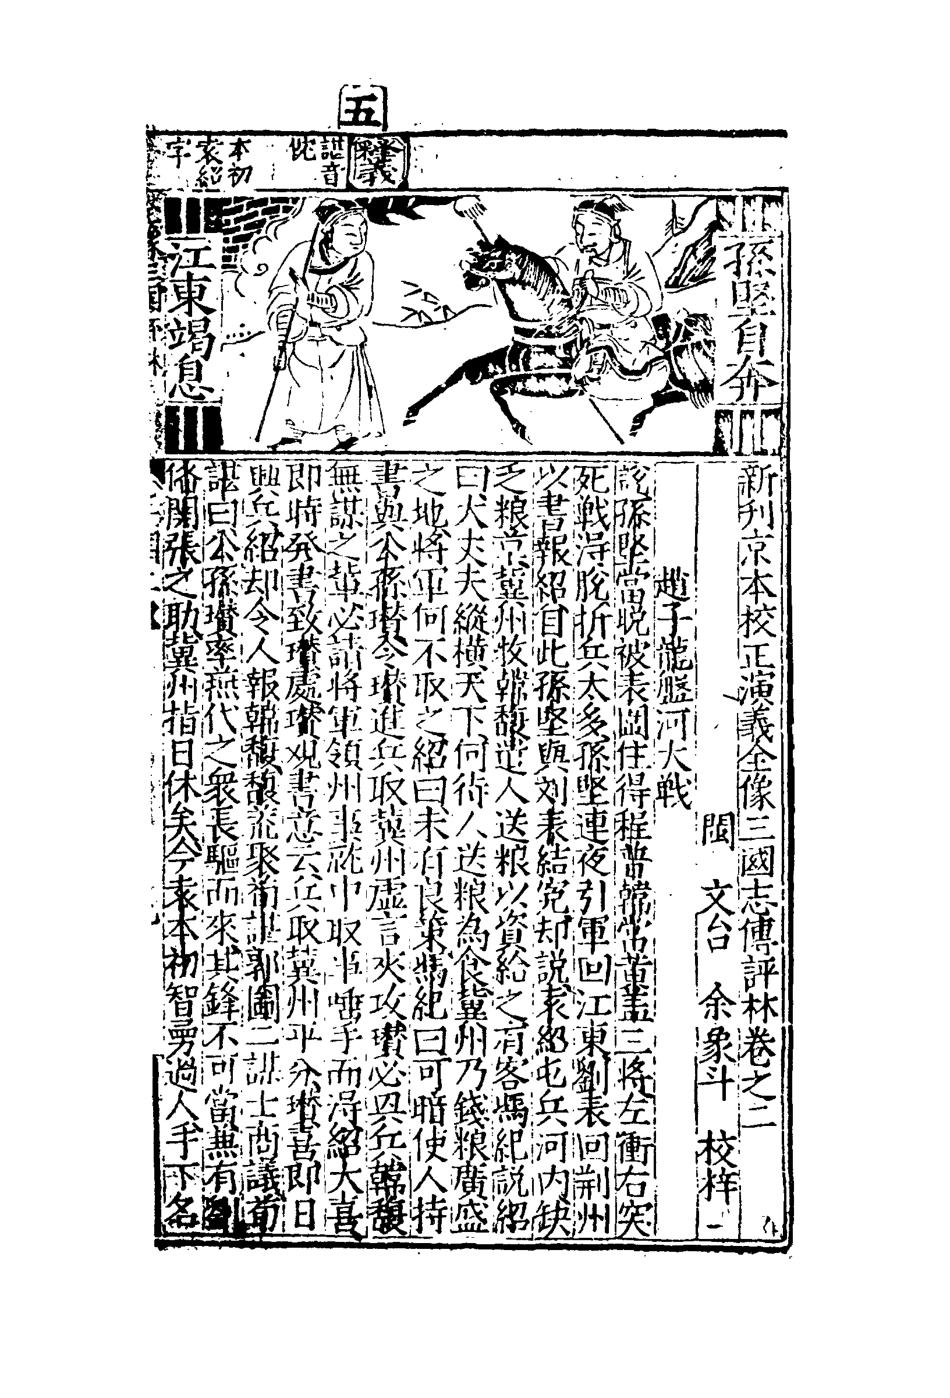 五
釋義
諶音忱
本初袁紹字
孫堅自奔
江東竭息
新刋京本校正演義全像三國志傳評林卷之二
閩 文台 余象斗 校梓
趙子龍盤河大戰
說孫堅當晚被表圍住得程普韓當黄盖三將左衝右突
死戰淂脫折兵太多孫堅連夜引軍回江東劉表回荆州
以書報紹自此孫堅與刘表結寃却説袁紹屯兵河内缺
乏粮草冀州牧韓馥遣人送粮以資給之有客馮紀説紹
曰大丈夫縱横天下何待人送粮為食冀州乃錢粮廣盛
之地將軍何不取之紹曰未有良策馮紀曰可暗使人持
書與公孫瓚令瓚進兵取冀州虚言夾攻瓚必興兵韓馥
無謀之輩必請將軍領州事就中取事唾手而淂紹大喜
即時発書致瓚處瓚观書意云兵取冀州平分瓚喜即日
興兵紹却令人報韓馥馥荒聚荀諶郭圖二謀士商議荀
諶曰公孫瓚率燕代之衆長驅而來其鋒不可當無有刘
俻関張之助冀州指日休矣今袁本初智勇過人手下名